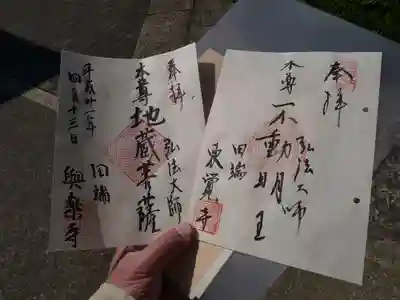 奉拝
本尊
不動明王
弘法大師
田端
東覚寺
奉拝
弘法大師
本尊
地蔵菩薩
田端
與楽寺
平成廿一年
四月十三日